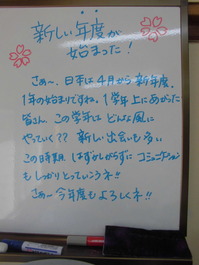 新しい年度が
始まった！
さぁ〜、日本は4月から新年度。
1年の始まりですね。1学年上にあがった
皆さん。この学年はどんな風に
やっていく？？ 新しい出会いも多い
この時期 はずかしがらずに コミュニケーション
もしっかりとっていこうネ!!
さぁ〜今年度もよろしくネ!!